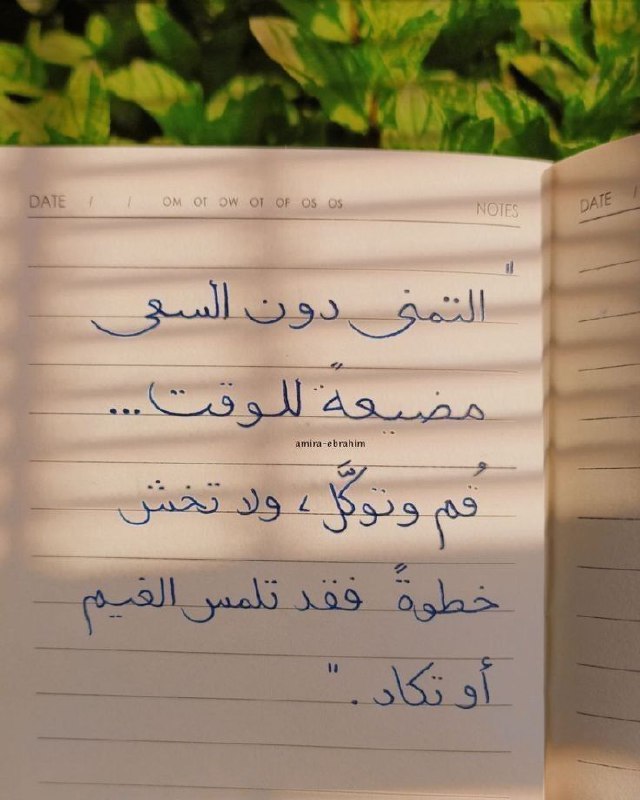 DATE / / OM OT OW OT OF OS OS
NOTES
DATE /
"
التمني دون السعي
مضيعةً للوقت...
amira-ebrahim
قُم وتوكَّل، ولا تخش
خطوةً فقد تلمس الغيم
أو تكاد."